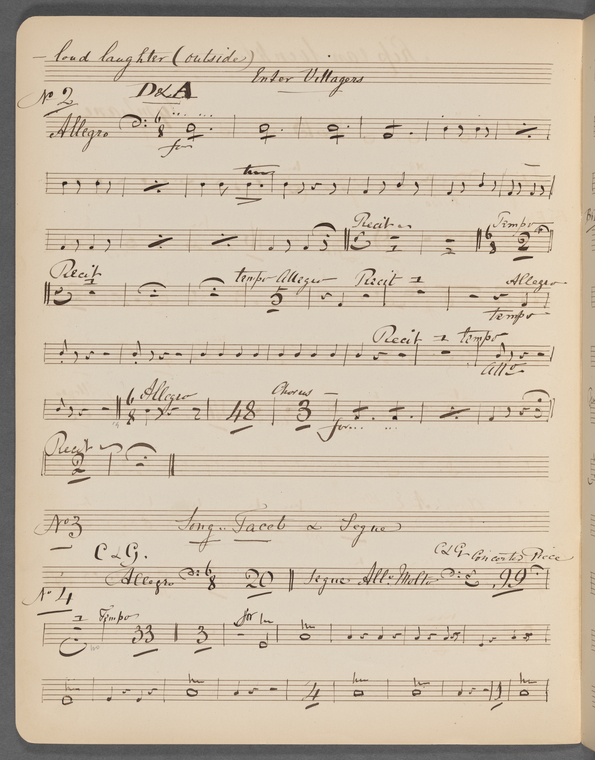 — loud laughter (outside)
Enter Villagers
No 2 D & A
Allegro 6 8
for
6 8 2
Recit Tempo
Recit tempo Allegro Recit 1 Allegro
5 tempo
Recit 1 tempo
Allo
6 8 Allegro 48 Chorus — 3
for
Recit
2
No 3 Song. Tacet & Segue
C & G. C & G Concerted Piece
Allegro 6 8 20 Segue Allo Molto 99
No 4
1 Tempo 33 3 for
4 1